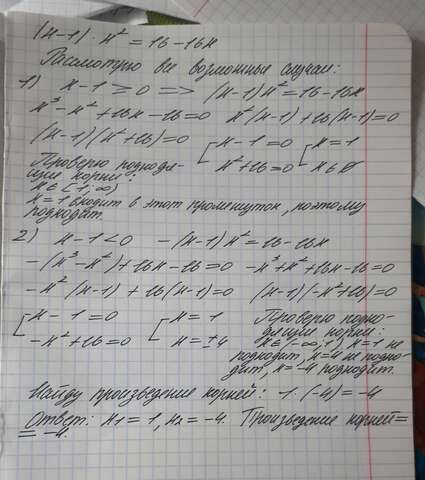 |x-1| · x² = 16-16x
Рассмотрю все возможные случаи:
1) x-1 ≥ 0 => (x-1)x² = 16-16x
x³-x²+16x-16=0 x²(x-1)+16(x-1)=0
(x-1)(x²+16)=0 [x-1=0 [x=1
x²+16=0 x∈∅
Проверю подходя-
щие корни:
x∈[1;∞)
x=1 входит в этот промежуток, поэтому
подходит.
2) x-1<0 -(x-1)x²=16-16x
-(x³-x²)+16x-16=0 -x³+x²+16x-16=0
-x²(x-1)+16(x-1)=0 (x-1)(-x²+16)=0
[x-1=0 [x=1
-x²+16=0 x=±4
Проверю подхо-
дящие корни:
x∈(-∞;1) x=1 не
подходит, x=4 не подхо-
дит, x=-4 подходит.
Найду произведение корней: 1·(-4)=-4
Ответ: x1=1, x2=-4. Произведение корней=
=-4.